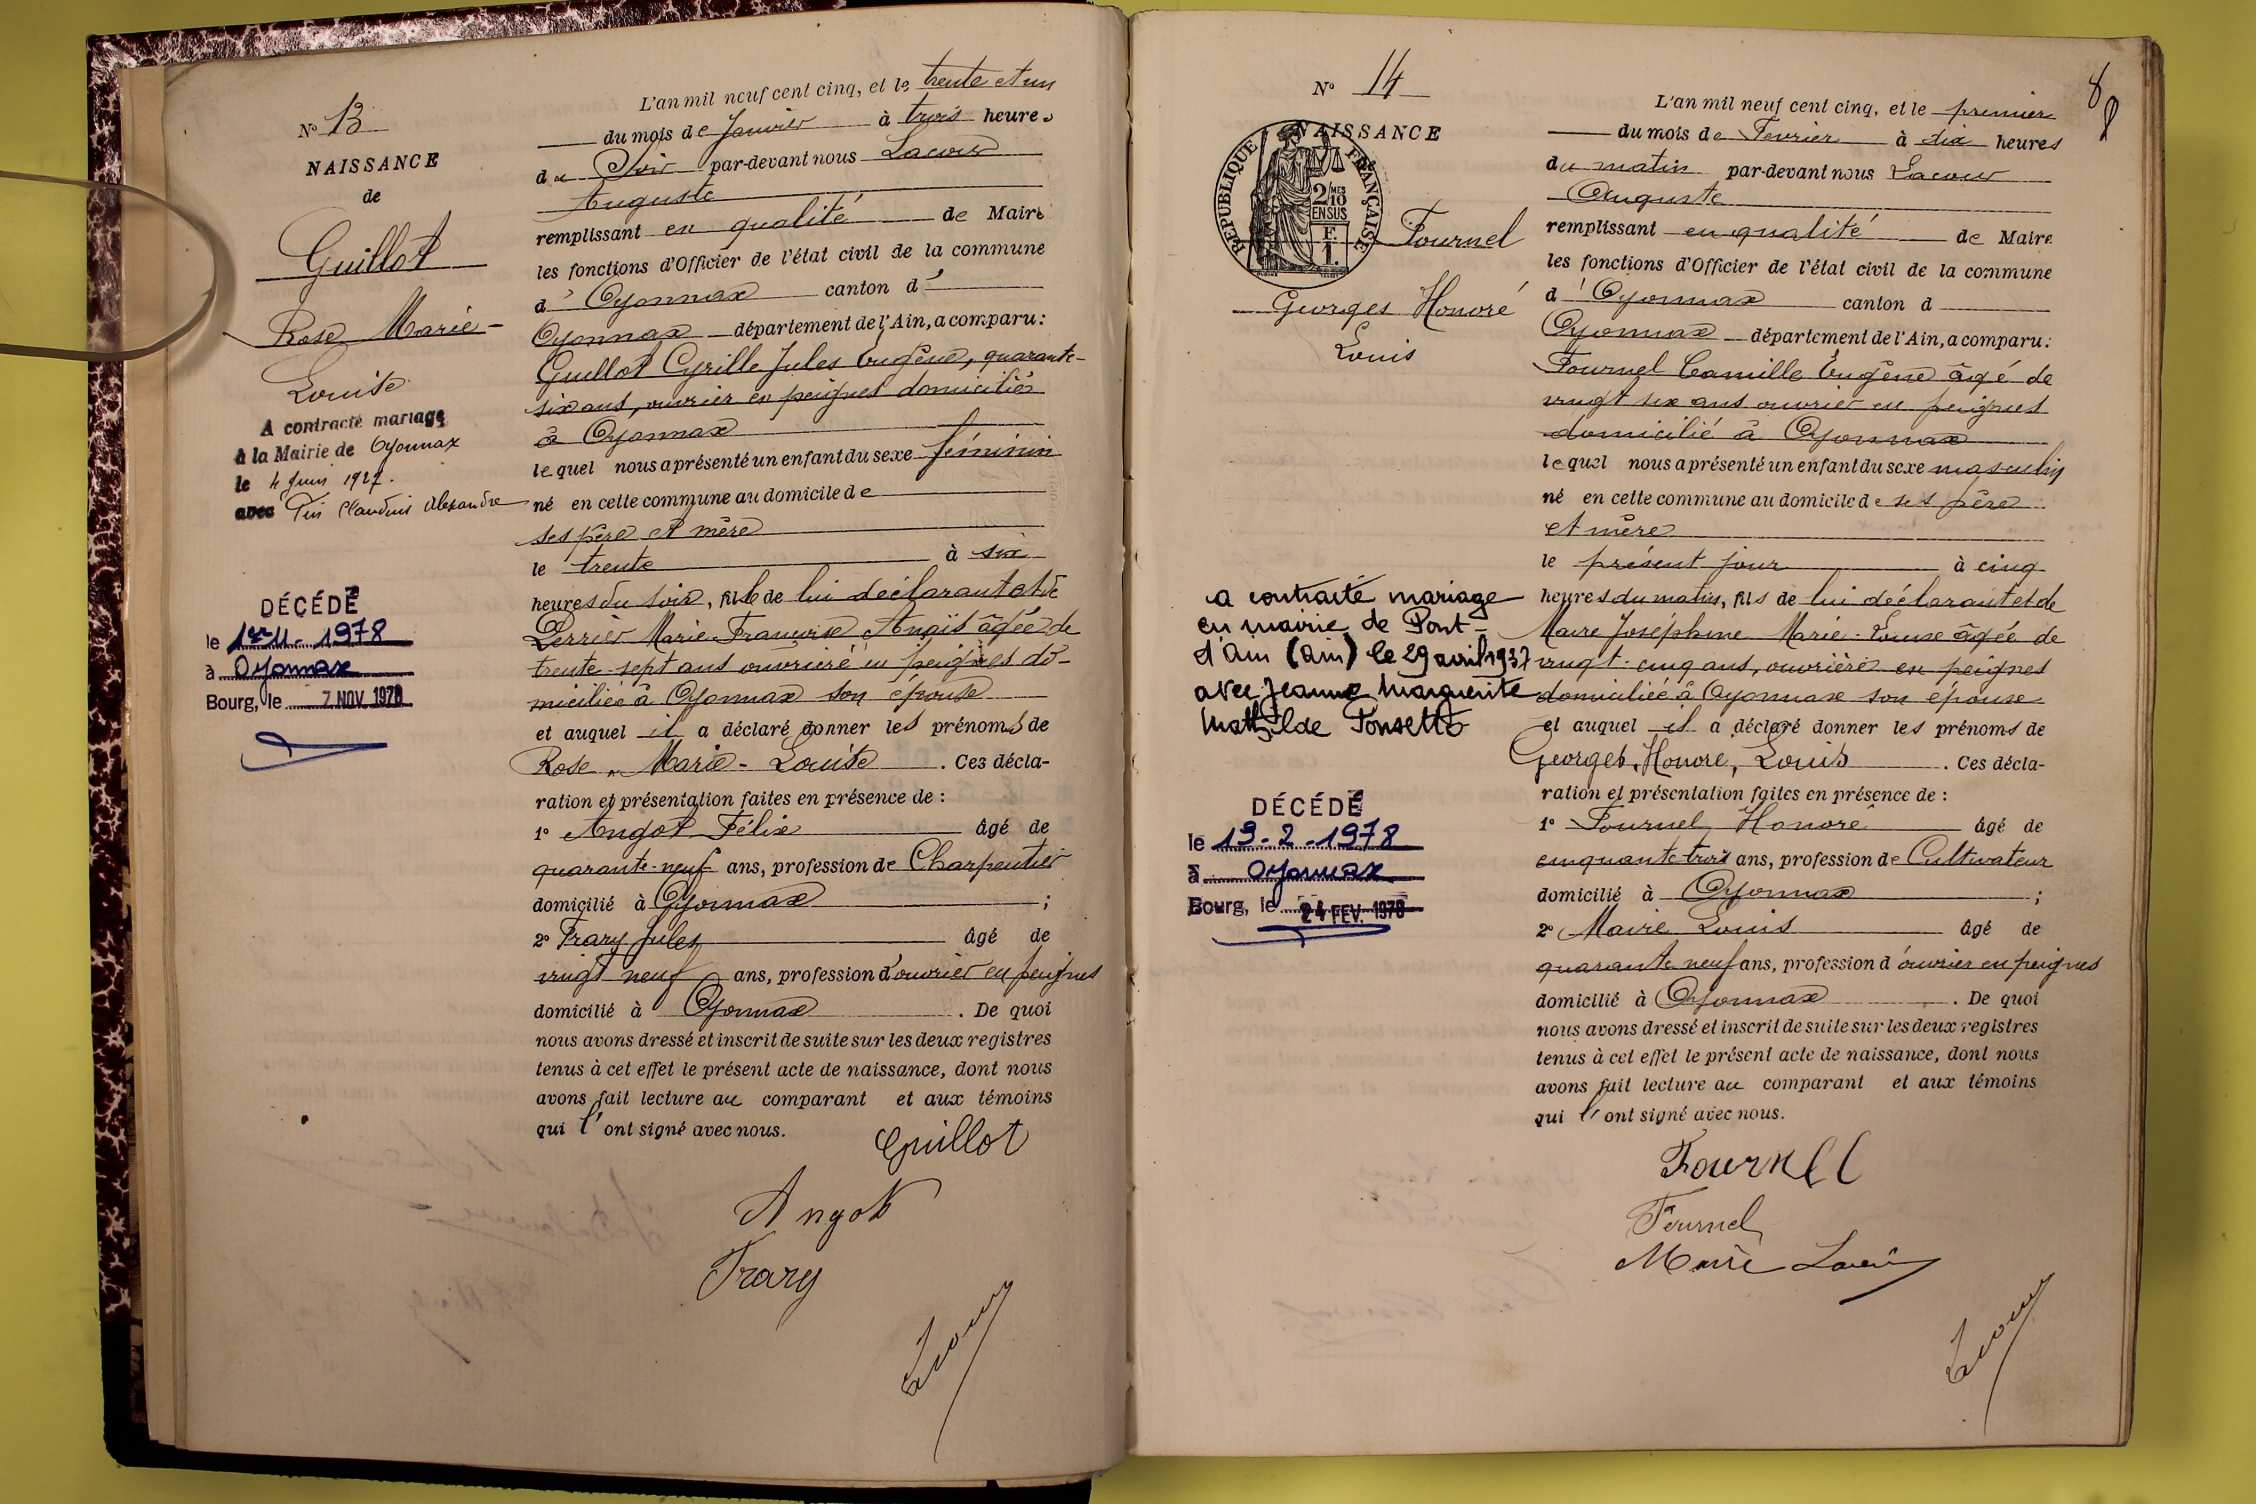 N° 13
NAISSANCE
de
Guillot
Rose Marie-
Louise
A contracté mariage
à la Mairie de Oyonnax
le 4 Juin 1927.
avec Claudius Alexandre
DÉCÉDÉ
le 1er 11. 1978
à Oyonnax
Bourg, le 7 NOV. 1978
L'an mil neuf cent cinq, et le trente et un
du mois de Janvier à trois heures
du Soir par-devant nous Lacour
Auguste
remplissant en qualité de Maire
les fonctions d'Officier de l'état civil de la commune
d' Oyonnax canton d'
Oyonnax département de l'Ain, a comparu :
Guillot Cyrille Jules Eugène, quarante-
six ans, ouvrier en peignes domicilié
à Oyonnax
lequel nous a présenté un enfant du sexe féminin
né en cette commune au domicile de
ses père et mère
le trente à six
heures du soir, fille de lui déclarant et de
Perrier Marie Françoise Anaïs âgée de
trente-sept ans ouvrière en peignes do-
miciliée à Oyonnax son épouse
et auquel il a déclaré donner les prénoms de
Rose, Marie-Louise. Ces décla-
ration et présentation faites en présence de :
1° Angot Félix âgé de
quarante-neuf ans, profession de Charpentier
domicilié à Oyonnax ;
2° Frary Jules âgé de
vingt neuf ans, profession d'ouvrier en peignes
domicilié à Oyonnax. De quoi
nous avons dressé et inscrit de suite sur les deux registres
tenus à cet effet le présent acte de naissance, dont nous
avons fait lecture au comparant et aux témoins
qui l'ont signé avec nous.
Guillot
Angot
Frary
Lacour
8
N° 14
NAISSANCE
RÉPUBLIQUE FRANÇAISE
2 MES
10
EN SUS
F.
1.
Fournel
Georges Honoré
Louis
a contracté mariage
en mairie de Pont-
d'Ain (Ain) le 29 avril 1937
avec Jeanne Marguerite
Mathilde Ponsetto
DÉCÉDÉ
le 19-2-1978
à Oyonnax
Bourg, le 24 FEV. 1978
L'an mil neuf cent cinq, et le premier
du mois de Fevrier à dix heures
du matin par-devant nous Lacour
Auguste
remplissant en qualité de Maire
les fonctions d'Officier de l'état civil de la commune
d' Oyonnax canton d
Oyonnax département de l'Ain, a comparu :
Fournel Camille Eugène âgé de
vingt six ans ouvrier en peignes
domicilié à Oyonnax
lequel nous a présenté un enfant du sexe masculin
né en cette commune au domicile de ses père
et mère
le présent jour à cinq
heures du matin, fils de lui déclarant et de
Maire Joséphine Marie-Louise âgée de
vingt-cinq ans, ouvrière en peignes
domiciliée à Oyonnax son épouse
et auquel il a déclaré donner les prénoms de
Georges, Honoré, Louis. Ces décla-
ration et présentation faites en présence de :
1° Fournel Honoré âgé de
cinquante trois ans, profession de Cultivateur
domicilié à Oyonnax ;
2° Maire Louis âgé de
quarante neuf ans, profession d'ouvrier en peignes
domicilié à Oyonnax. De quoi
nous avons dressé et inscrit de suite sur les deux registres
tenus à cet effet le présent acte de naissance, dont nous
avons fait lecture au comparant et aux témoins
qui l'ont signé avec nous.
Fournel
Fournel
Maire Louis
Lacour